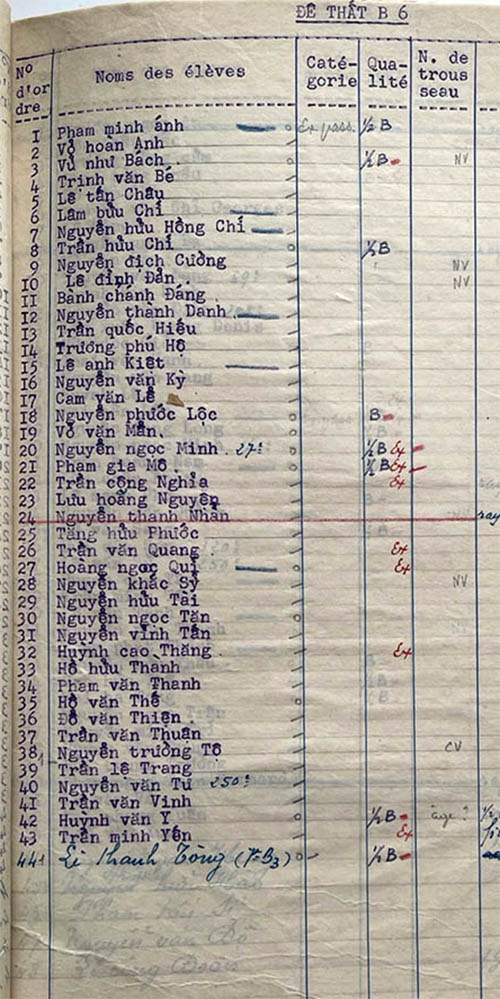 ĐỆ THẤT B 6
No d'or dre Noms des élèves Caté-gorie Qua-lité N. de trous seau
1 Phạm minh ánh Ex pass. ½ B
2 Võ hoàn Anh
3 Vũ như Bách ½ B NV
4 Trịnh văn Bé
5 Lê tấn Châu
6 Lâm bửu Chi
7 Nguyễn hữu Hồng Chí
8 Trần hữu Chí ½B
9 Nguyễn địch Cường NV
10 Lê đình Đản NV
11 Bành chánh Đáng
12 Nguyễn thanh Danh
13 Trần quốc Hiếu
14 Trương phú Hồ
15 Lê anh Kiệt
16 Nguyễn văn Kỳ
17 Cam văn Lê
18 Nguyễn phước Lộc B
19 Võ văn Mẫn
20 Nguyễn ngọc Minh 27: ½B Ex
21 Phạm gia Mô ½B Ex
22 Trần công Nghĩa Ex
23 Lưu hoàng Nguyên
24 Nguyễn thanh Nhàn
25 Tăng hữu Phước
26 Trần văn Quang Ex
27 Hoàng ngọc Quí Ex
28 Nguyễn khắc Sỹ NV
29 Nguyễn hữu Tài
30 Nguyễn ngọc Tấn
31 Nguyễn vĩnh Tấn
32 Huỳnh cao Thăng Ex
33 Hồ hữu Thành
34 Phạm văn Thanh
35 Hồ văn Thế
36 Đỗ văn Thiện
37 Trần văn Thuận
38 Nguyễn trường Tô CV
39 Trần lê Trang
40 Nguyễn văn Tư 250:
41 Trần văn Vinh
42 Huỳnh văn Y ½B âge ?
43 Trần minh Yến Ex
44 Lê Thanh Tòng (7e B3) ½B